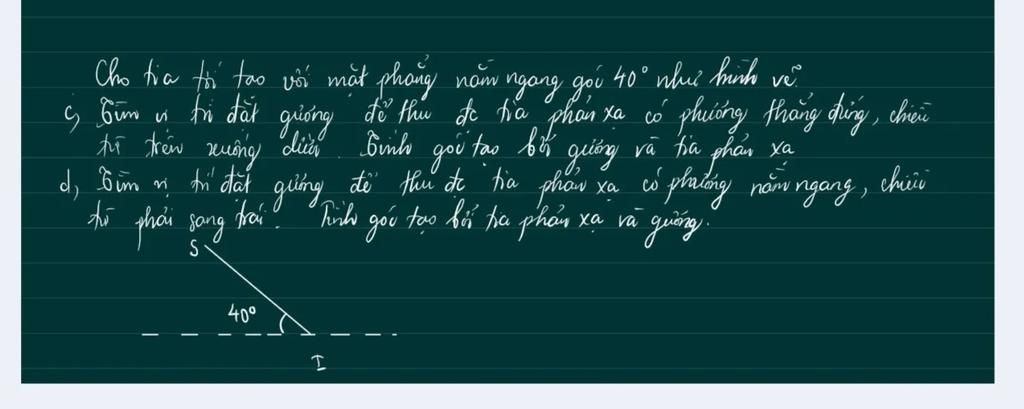 Cho tia tới tạo với mặt phẳng nằm ngang góc 40° như hình vẽ
c, Tìm vị trí đặt gương để thu đc tia phản xạ có phương thẳng đứng, chiều
từ trên xuống dưới. Tính góc tạo bởi gương và tia phản xạ
d, Tìm vị trí đặt gương để thu đc tia phản xạ có phương nằm ngang, chiều
từ phải sang trái. Tính góc tạo bởi tia phản xạ và gương.
S
40°
I